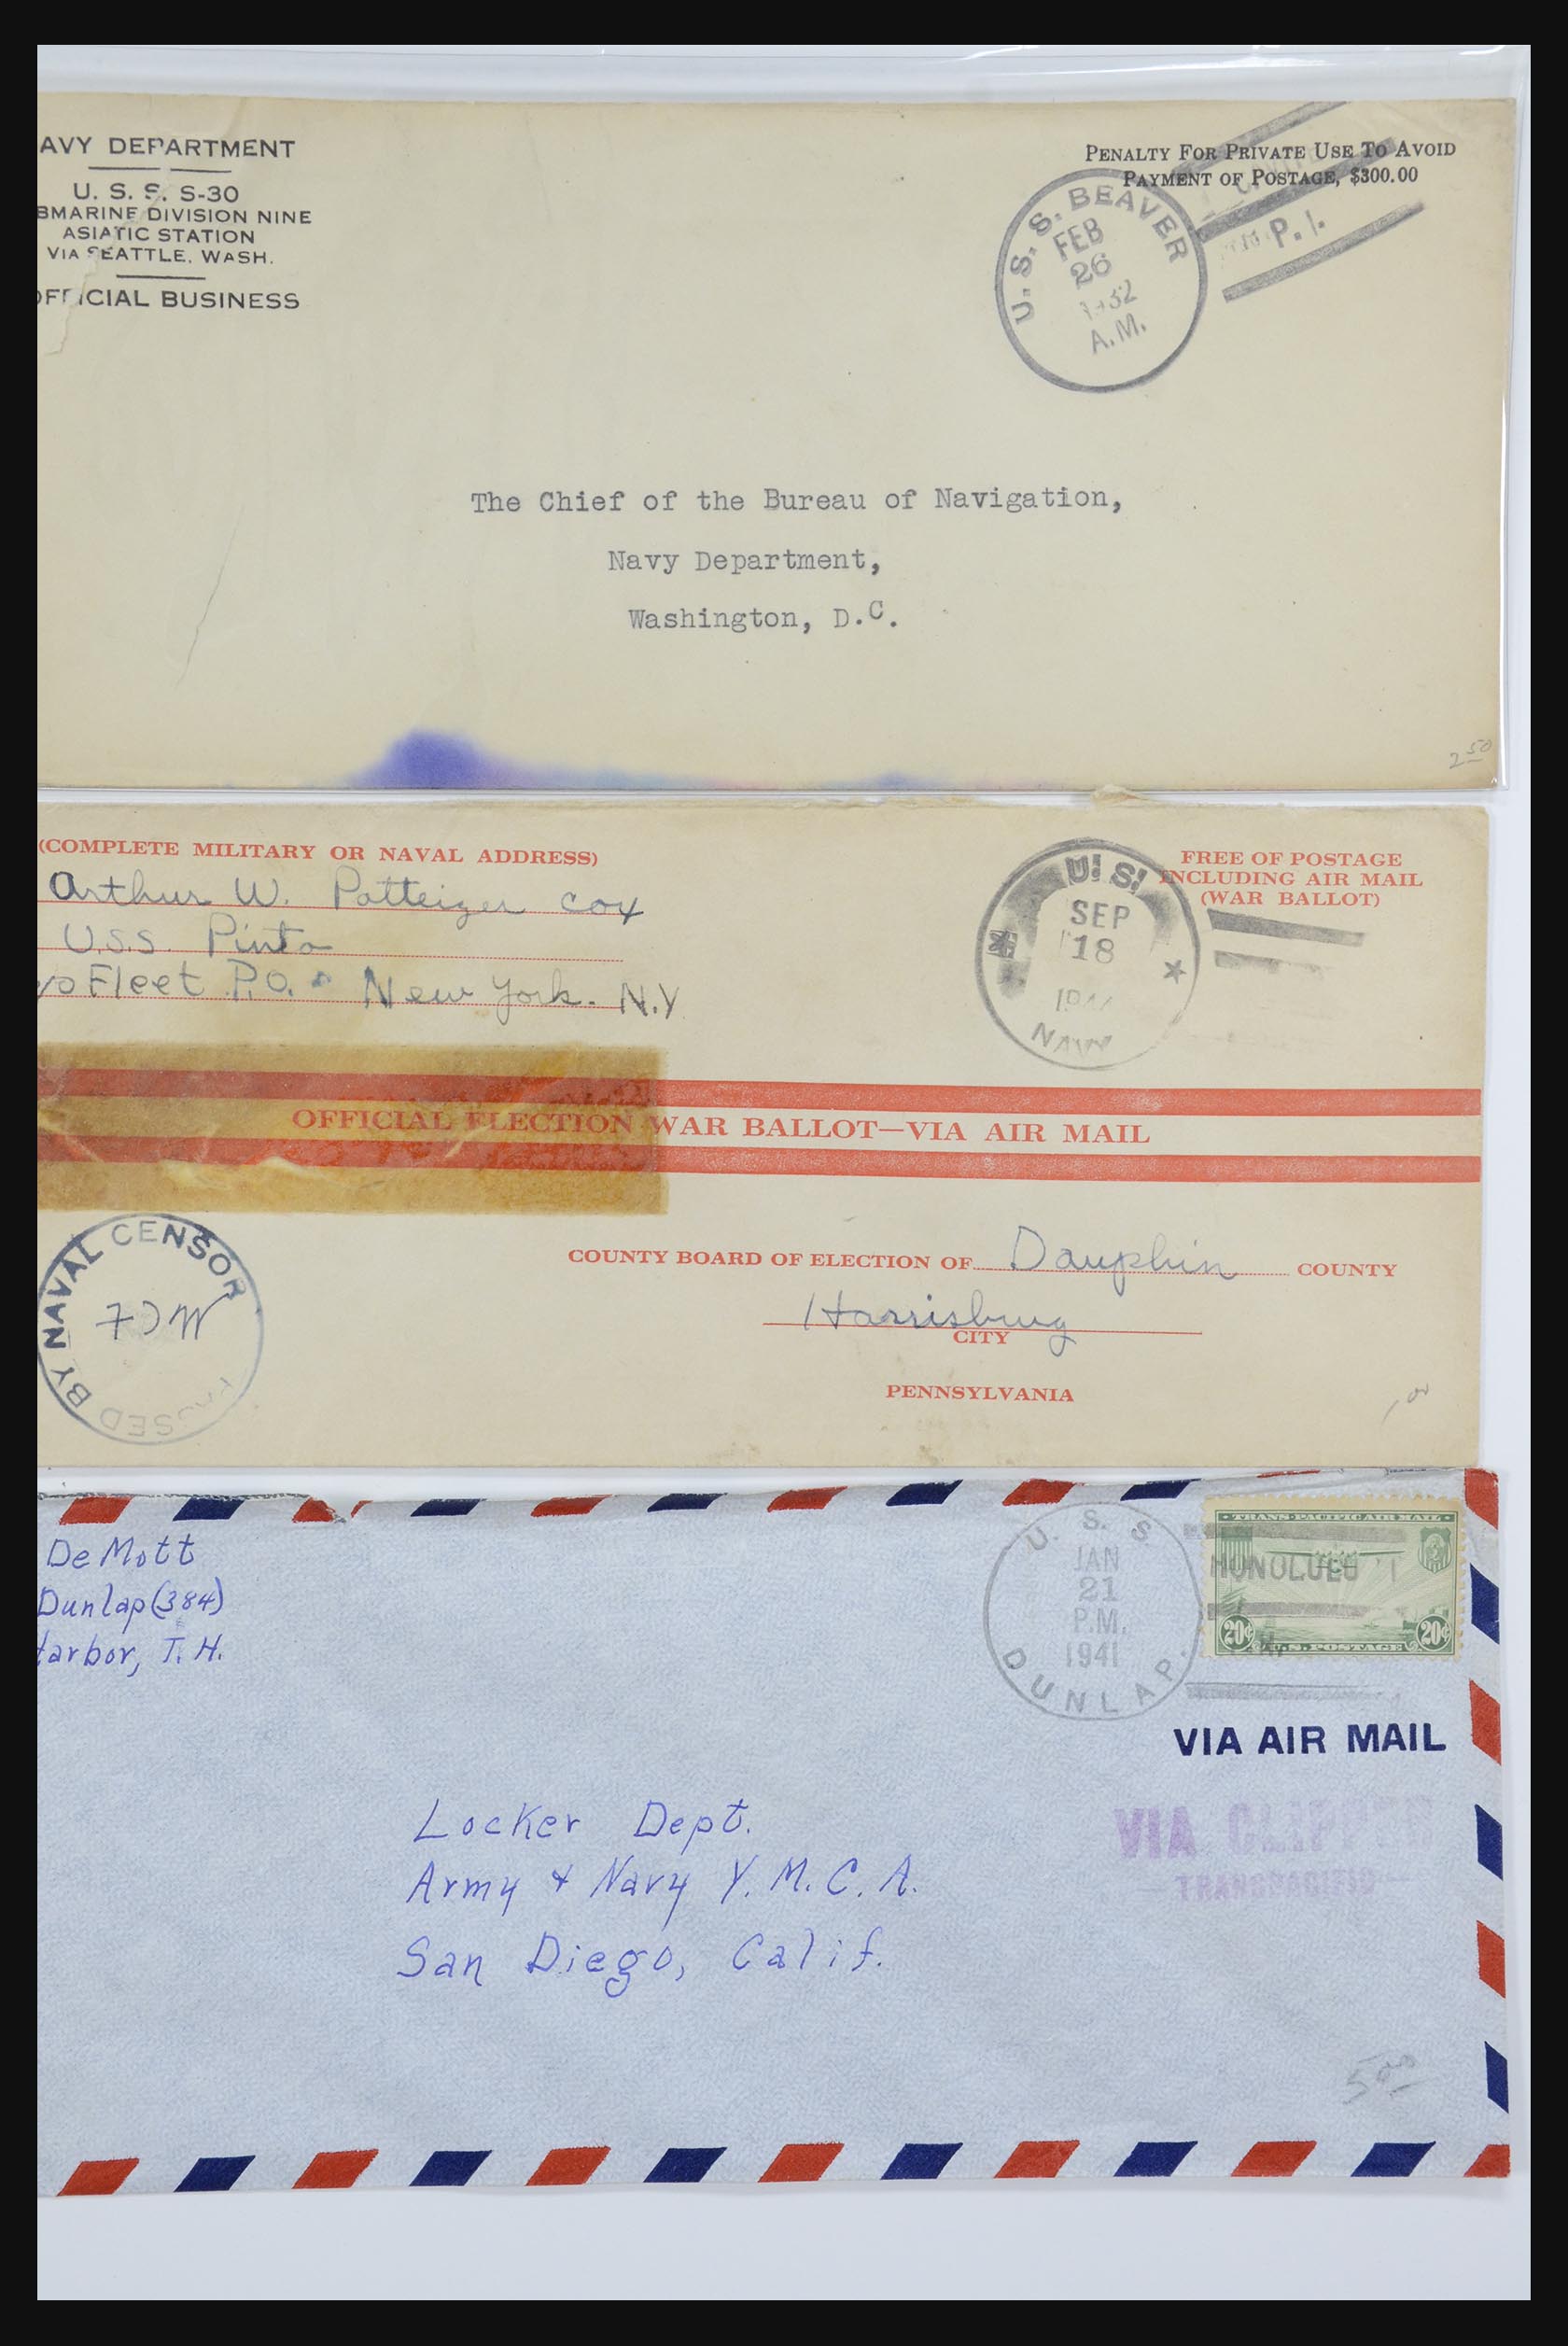 AVY DEPARTMENT
U. S. S. S-30
BMARINE DIVISION NINE
ASIATIC STATION
VIA SEATTLE, WASH.
OFFICIAL BUSINESS
PENALTY FOR PRIVATE USE TO AVOID
PAYMENT OF POSTAGE, $300.00
U. S. S. BEAVER
FEB
26
1932
A.M.
P. I.
The Chief of the Bureau of Navigation,
Navy Department,
Washington, D.C.
2 50
(COMPLETE MILITARY OR NAVAL ADDRESS)
Arthur W. Patteiger cox
U.S.S. Pinto
c/o Fleet P.O. New York. N.Y
U. S.
SEP
18
NAVY
FREE OF POSTAGE
INCLUDING AIR MAIL
(WAR BALLOT)
OFFICIAL ELECTION WAR BALLOT—VIA AIR MAIL
PASSED BY NAVAL CENSOR
COUNTY BOARD OF ELECTION OF Dauphin COUNTY
Harrisburg
CITY
PENNSYLVANIA
De Mott
Dunlap (384)
Harbor, T. H.
U. S. S.
JAN
21
P.M.
1941
DUNLAP.
HONOLULU
TRANS-PACIFIC AIR MAIL
20¢ U.S. POSTAGE 20¢
VIA AIR MAIL
VIA CLIPPER
TRANSPACIFIC
Locker Dept.
Army & Navy Y. M. C. A.
San Diego, Calif.
5 00